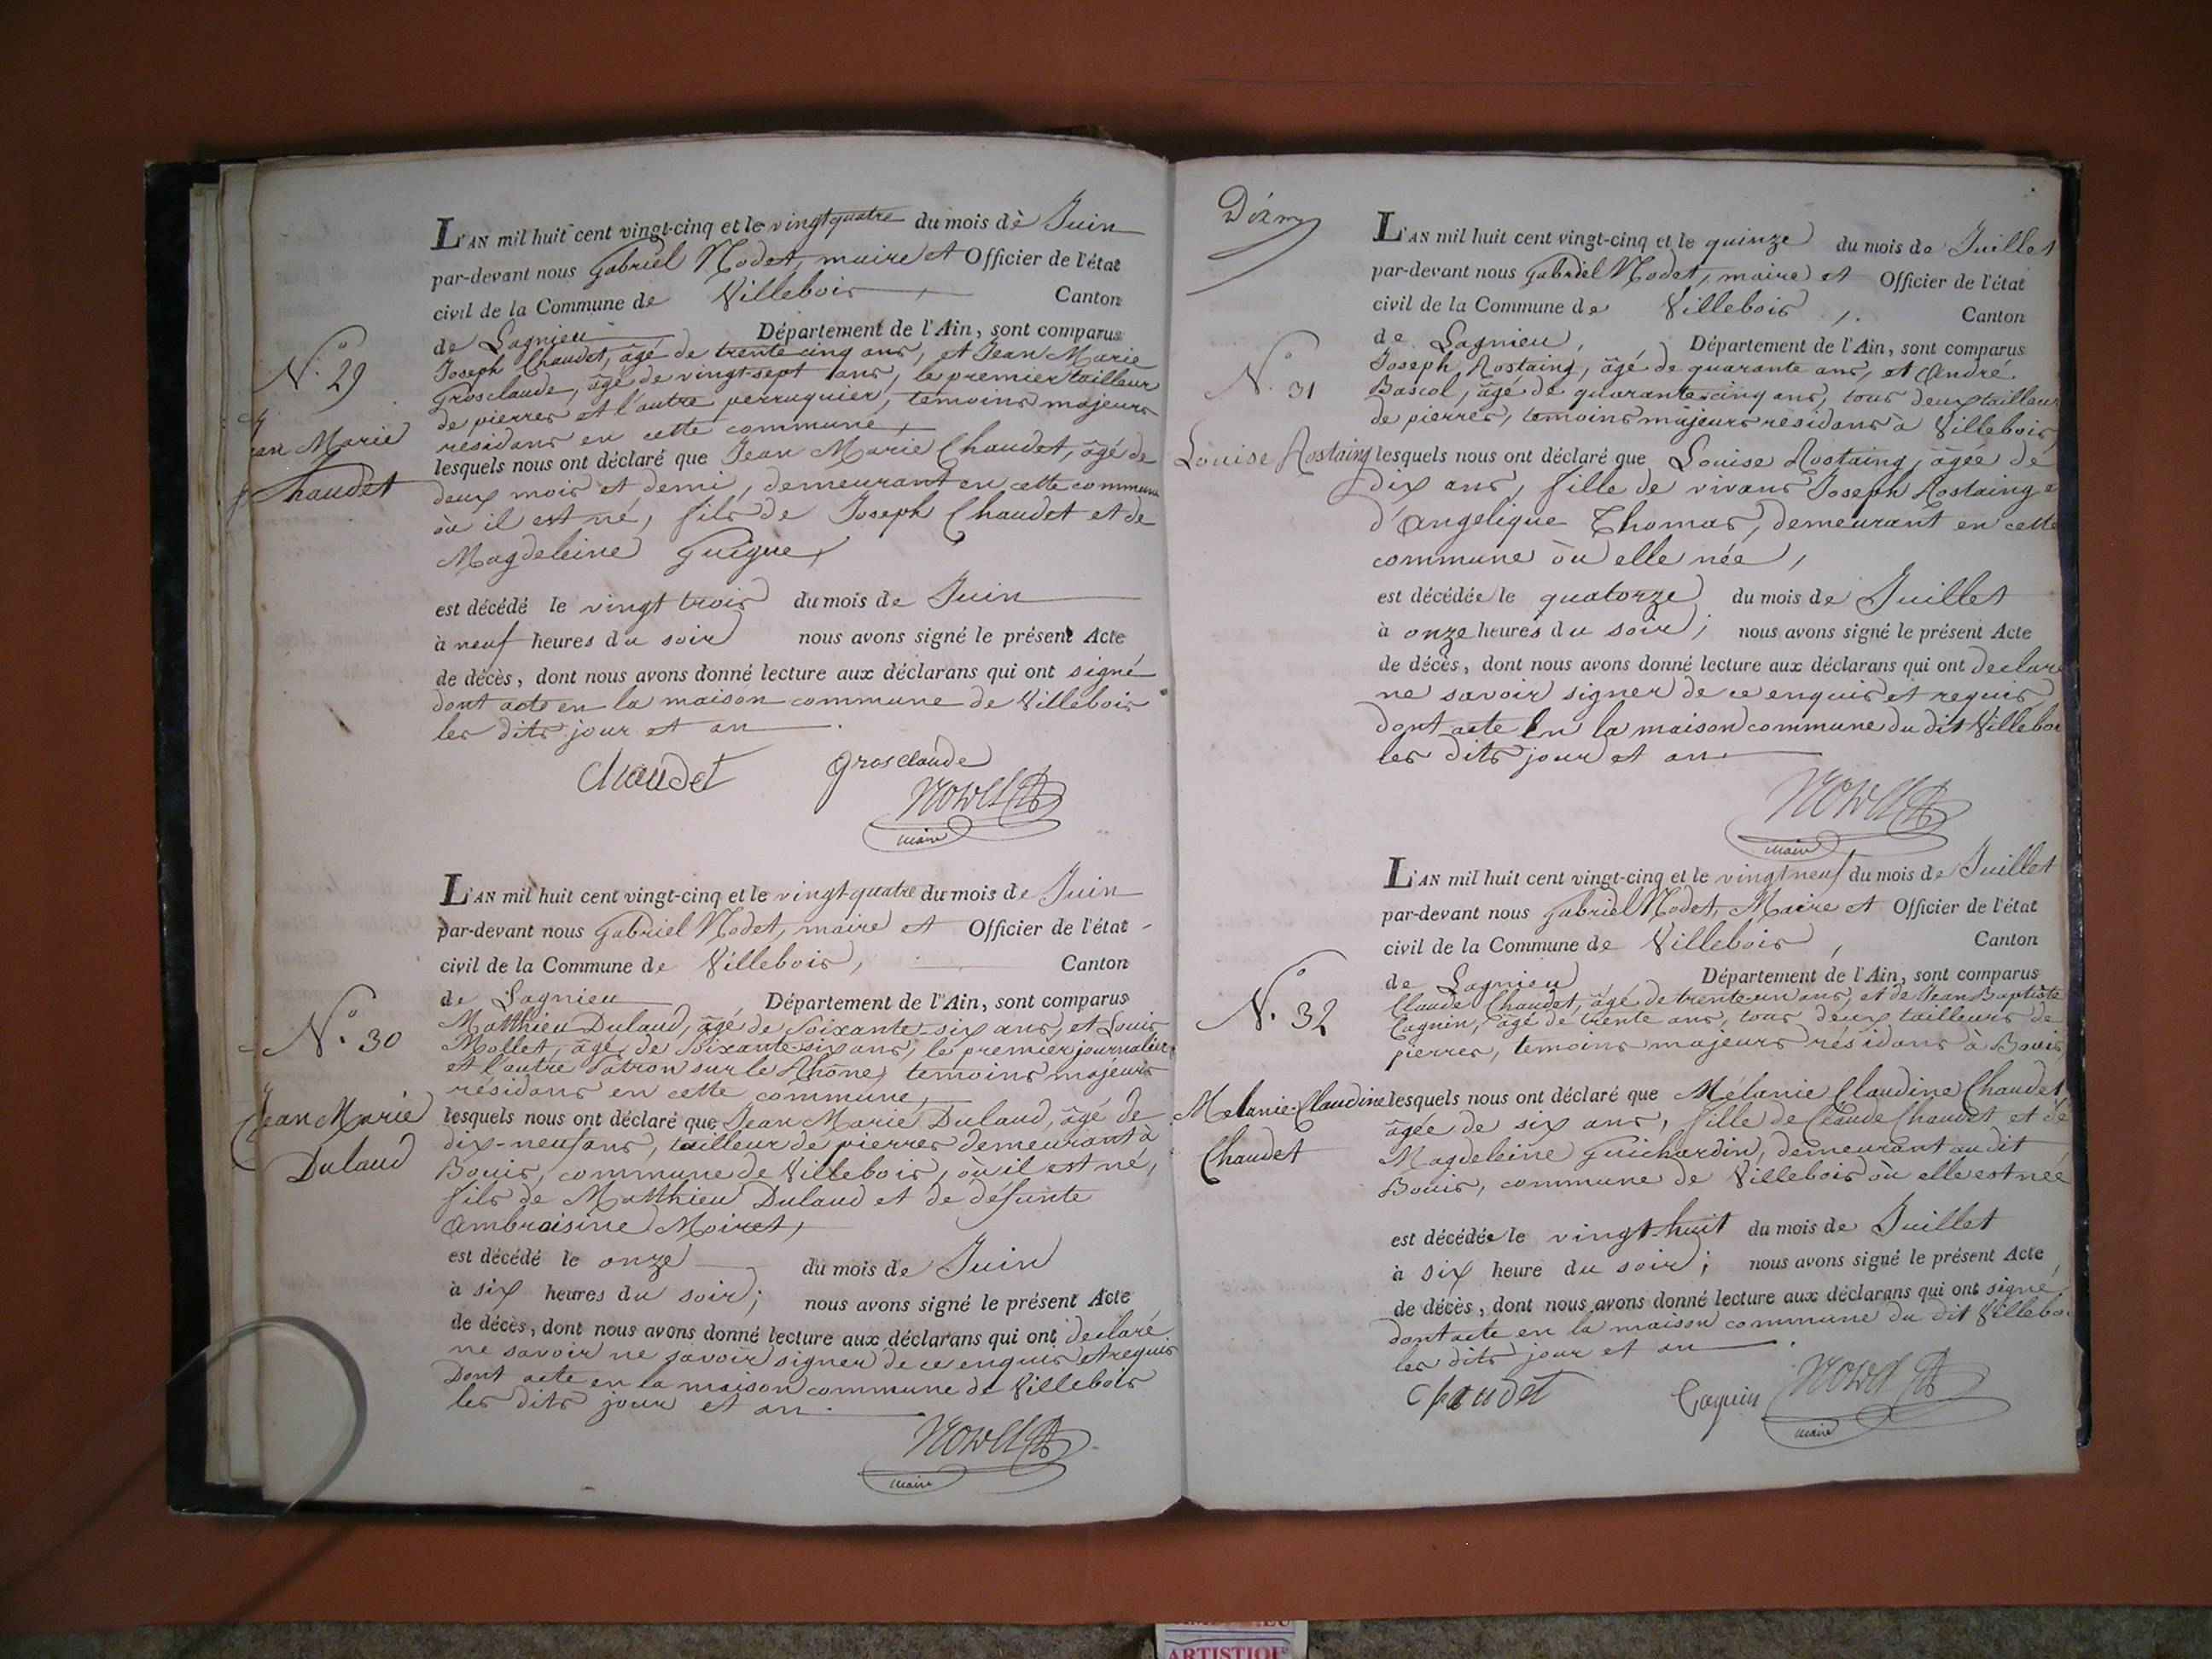 L'AN mil huit cent vingt-cinq et le vingt quatre du mois de Juin
par-devant nous Gabriel Nodet, maire et Officier de l'état
civil de la Commune de Villebois Canton
de Lagnieu Département de l'Ain, sont comparus
N.o 29
Joseph Chaudet, âgé de trente cinq ans, et Jean Marie
Grosclaude, âgé de vingt-sept ans, le premier tailleur
de pierres et l'autre perruquier, temoins majeurs
residans en cette commune,
Jean Marie
Chaudet
lesquels nous ont déclaré que Jean Marie Chaudet, âgé de
deux mois et demi, demeurant en cette commune
où il est né, fils de Joseph Chaudet et de
Magdeleine Guigue,
est décédé le vingt trois du mois de Juin
à neuf heures du soir nous avons signé le présent Acte
de décès, dont nous avons donné lecture aux déclarans qui ont signé
dont acte en la maison commune de Villebois
les dits jour et an.
Chaudet Grosclaude
Nodet
maire
L'AN mil huit cent vingt-cinq et le vingt-quatre du mois de Juin
par-devant nous Gabriel Nodet, maire et Officier de l'état
civil de la Commune de Villebois, Canton
de Lagnieu Département de l'Ain, sont comparus
N.o 30
Matthieu Dulaud, âgé de soixante-six ans, et Louis
Mollet, âgé de soixante six ans, le premier journalier
et l'autre Patron sur le Rhône, temoins majeurs
résidans en cette commune,
Jean Marie
Dulaud
lesquels nous ont déclaré que Jean Marie Dulaud, âgé de
dix-neuf ans, tailleur de pierres demeurant à
Bouis, commune de Villebois, où il est né,
fils de Matthieu Dulaud et de défunte
Ambroisine Moiret,
est décédé le onze du mois de Juin
à six heures du soir; nous avons signé le présent Acte
de décès, dont nous avons donné lecture aux déclarans qui ont declaré
ne savoir ne savoir signer de ce enquis et requis
Dont acte en la maison commune de Villebois
les dits jour et an.
Nodet
maire
L'AN mil huit cent vingt-cinq et le quinze du mois de Juillet
par-devant nous Gabriel Nodet, maire et Officier de l'état
civil de la Commune de Villebois, Canton
de Lagnieu, Département de l'Ain, sont comparus
N.o 31
Joseph Rostaing, âgé de quarante ans, et André
Bascol, âgé de quarante-cinq ans, tous deux tailleurs
de pierres, temoins majeurs residans à Villebois,
Louise Rostaing
lesquels nous ont déclaré que Louise Rostaing, âgée de
dix ans, fille de vivans Joseph Rostaing e
d'Angelique Thomas, demeurant en cette
commune où elle née,
est décédée le quatorze du mois de Juillet
à onze heures du soir; nous avons signé le présent Acte
de décès, dont nous avons donné lecture aux déclarans qui ont declaré
ne savoir signer de ce enquis et requis
dont acte En la maison commune du dit Villeboi
les dits jour et an
Nodet
maire
L'AN mil huit cent vingt-cinq et le vingt neuf du mois de Juillet
par-devant nous Gabriel Nodet, Maire et Officier de l'état
civil de la Commune de Villebois, Canton
de Lagnieu Département de l'Ain, sont comparus
N.o 32
Claude Chaudet, âgé de trente un ans, et de Jean Baptiste
Cagnin, âgé de trente ans, tous deux tailleurs de
pierres, temoins majeurs résidans à Bouis,
Melanie-Claudine
Chaudet
lesquels nous ont déclaré que Mélanie Claudine Chaudet
âgée de six ans, fille de Claude Chaudet et de
Magdeleine Guichardin, demeurant au dit
Bouis, commune de Villebois où elle est née
est décédée le vingt huit du mois de Juillet
à six heure du soir; nous avons signé le présent Acte
de décès, dont nous avons donné lecture aux déclarans qui ont signé,
dont acte en la maison commune du dit Villebo
les dits jour et an.
Chaudet Caguin Nodet
maire
ARTISTIQU